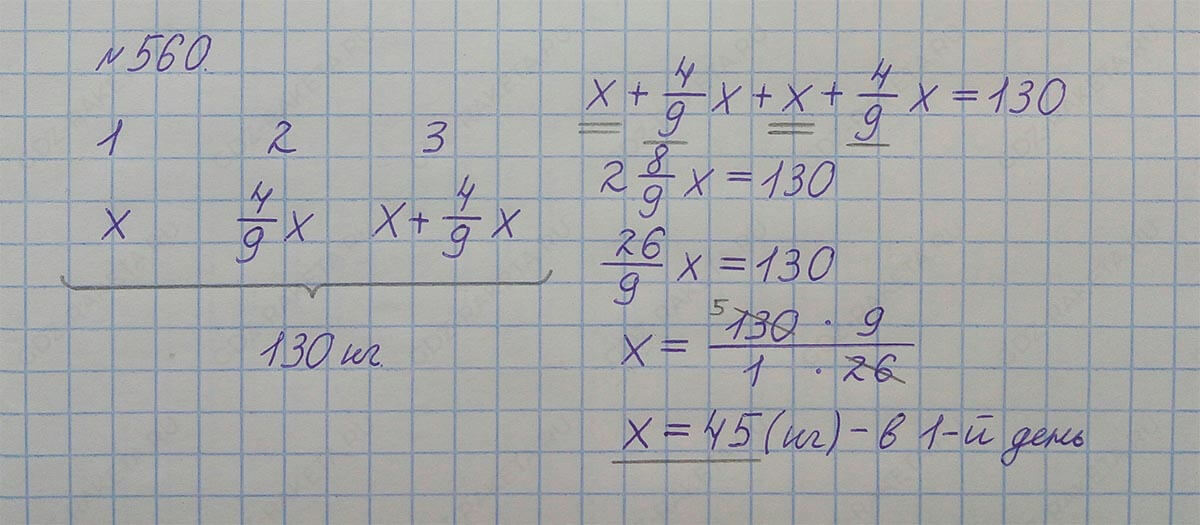 №560.
1 2 3
x 4/9 x x + 4/9 x
130 кг.
x + 4/9 x + x + 4/9 x = 130
2 8/9 x = 130
26/9 x = 130
5
x = 130 · 9 / 1 · 26
x = 45 (кг) - в 1-й день